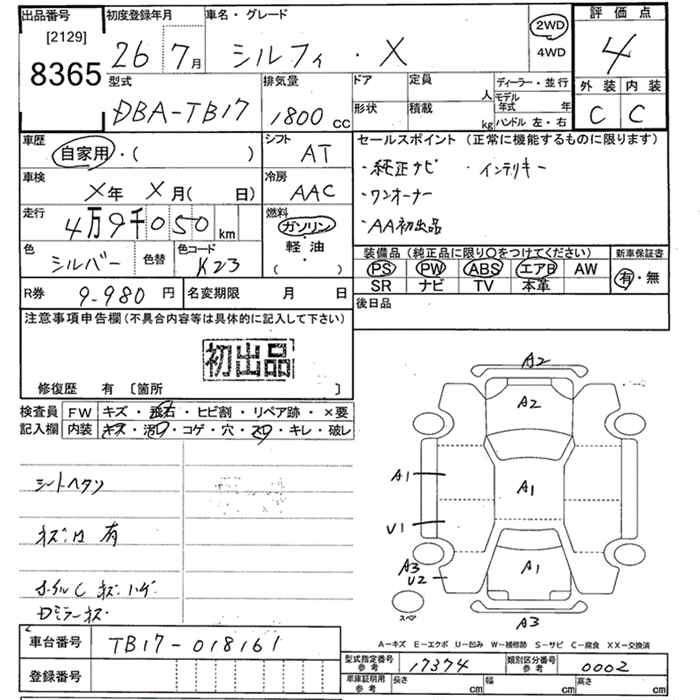 出品番号 初度登録年月 車名・グレード 評価点
[2129] 26年7月 シルフィ・X 2WD 4
8365 4WD
型式 排気量 ドア 定員 人 ディーラー・並行 外装 内装
DBA-TB17 1800cc 形状 積載 kg モデル年式 年 C C
ハンドル 左・右
車歴 シフト セールスポイント (正常に機能するものに限ります)
自家用・( ) AT ・純正ナビ ・インテリキー
車検 冷房 ・ワンオーナー
X年 X月( 日) AAC ・AA初出品
走行 燃料
4万9千050km ガソリン
色 色替 色コード 軽油 装備品 (純正品に限り○をつけてください) 新車保証書
シルバー K23 ( ) PS PW ABS エアB AW 有・無
SR ナビ TV 本革
R券 9-980円 名変期限 月 日 後日品
注意事項申告欄 (不具合内容等は具体的に記入して下さい)
初出品
修復歴 有 〔箇所 〕
検査員 FW キズ・飛石・ヒビ割・リペア跡・×要
記入欄 内装 キズ・汚れ・コゲ・穴・スレ・キレ・破レ
シートヘタリ
有
ホイルC キズ・ハゲ
Dミラーキズ
A2
A2
A1 A1
U1
A3 A1
U2
スペア
A3
A-キズ E-エクボ U-凹み W-補修跡 S-サビ C-腐食 XX-交換済
車台番号 TB17-018161
型式指定番号 参考 17374 類別区分番号 参考 0002
登録番号 車庫証明用 参考 長さ cm 幅 cm 高さ cm